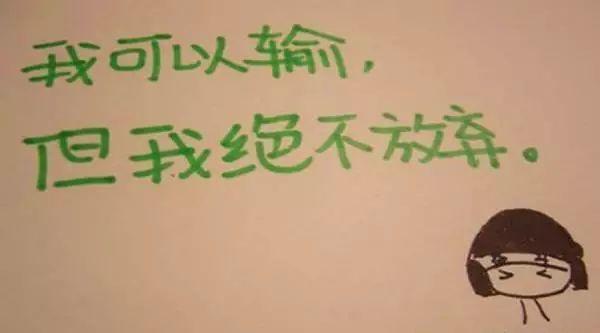 我可以输，
但我绝不放弃。